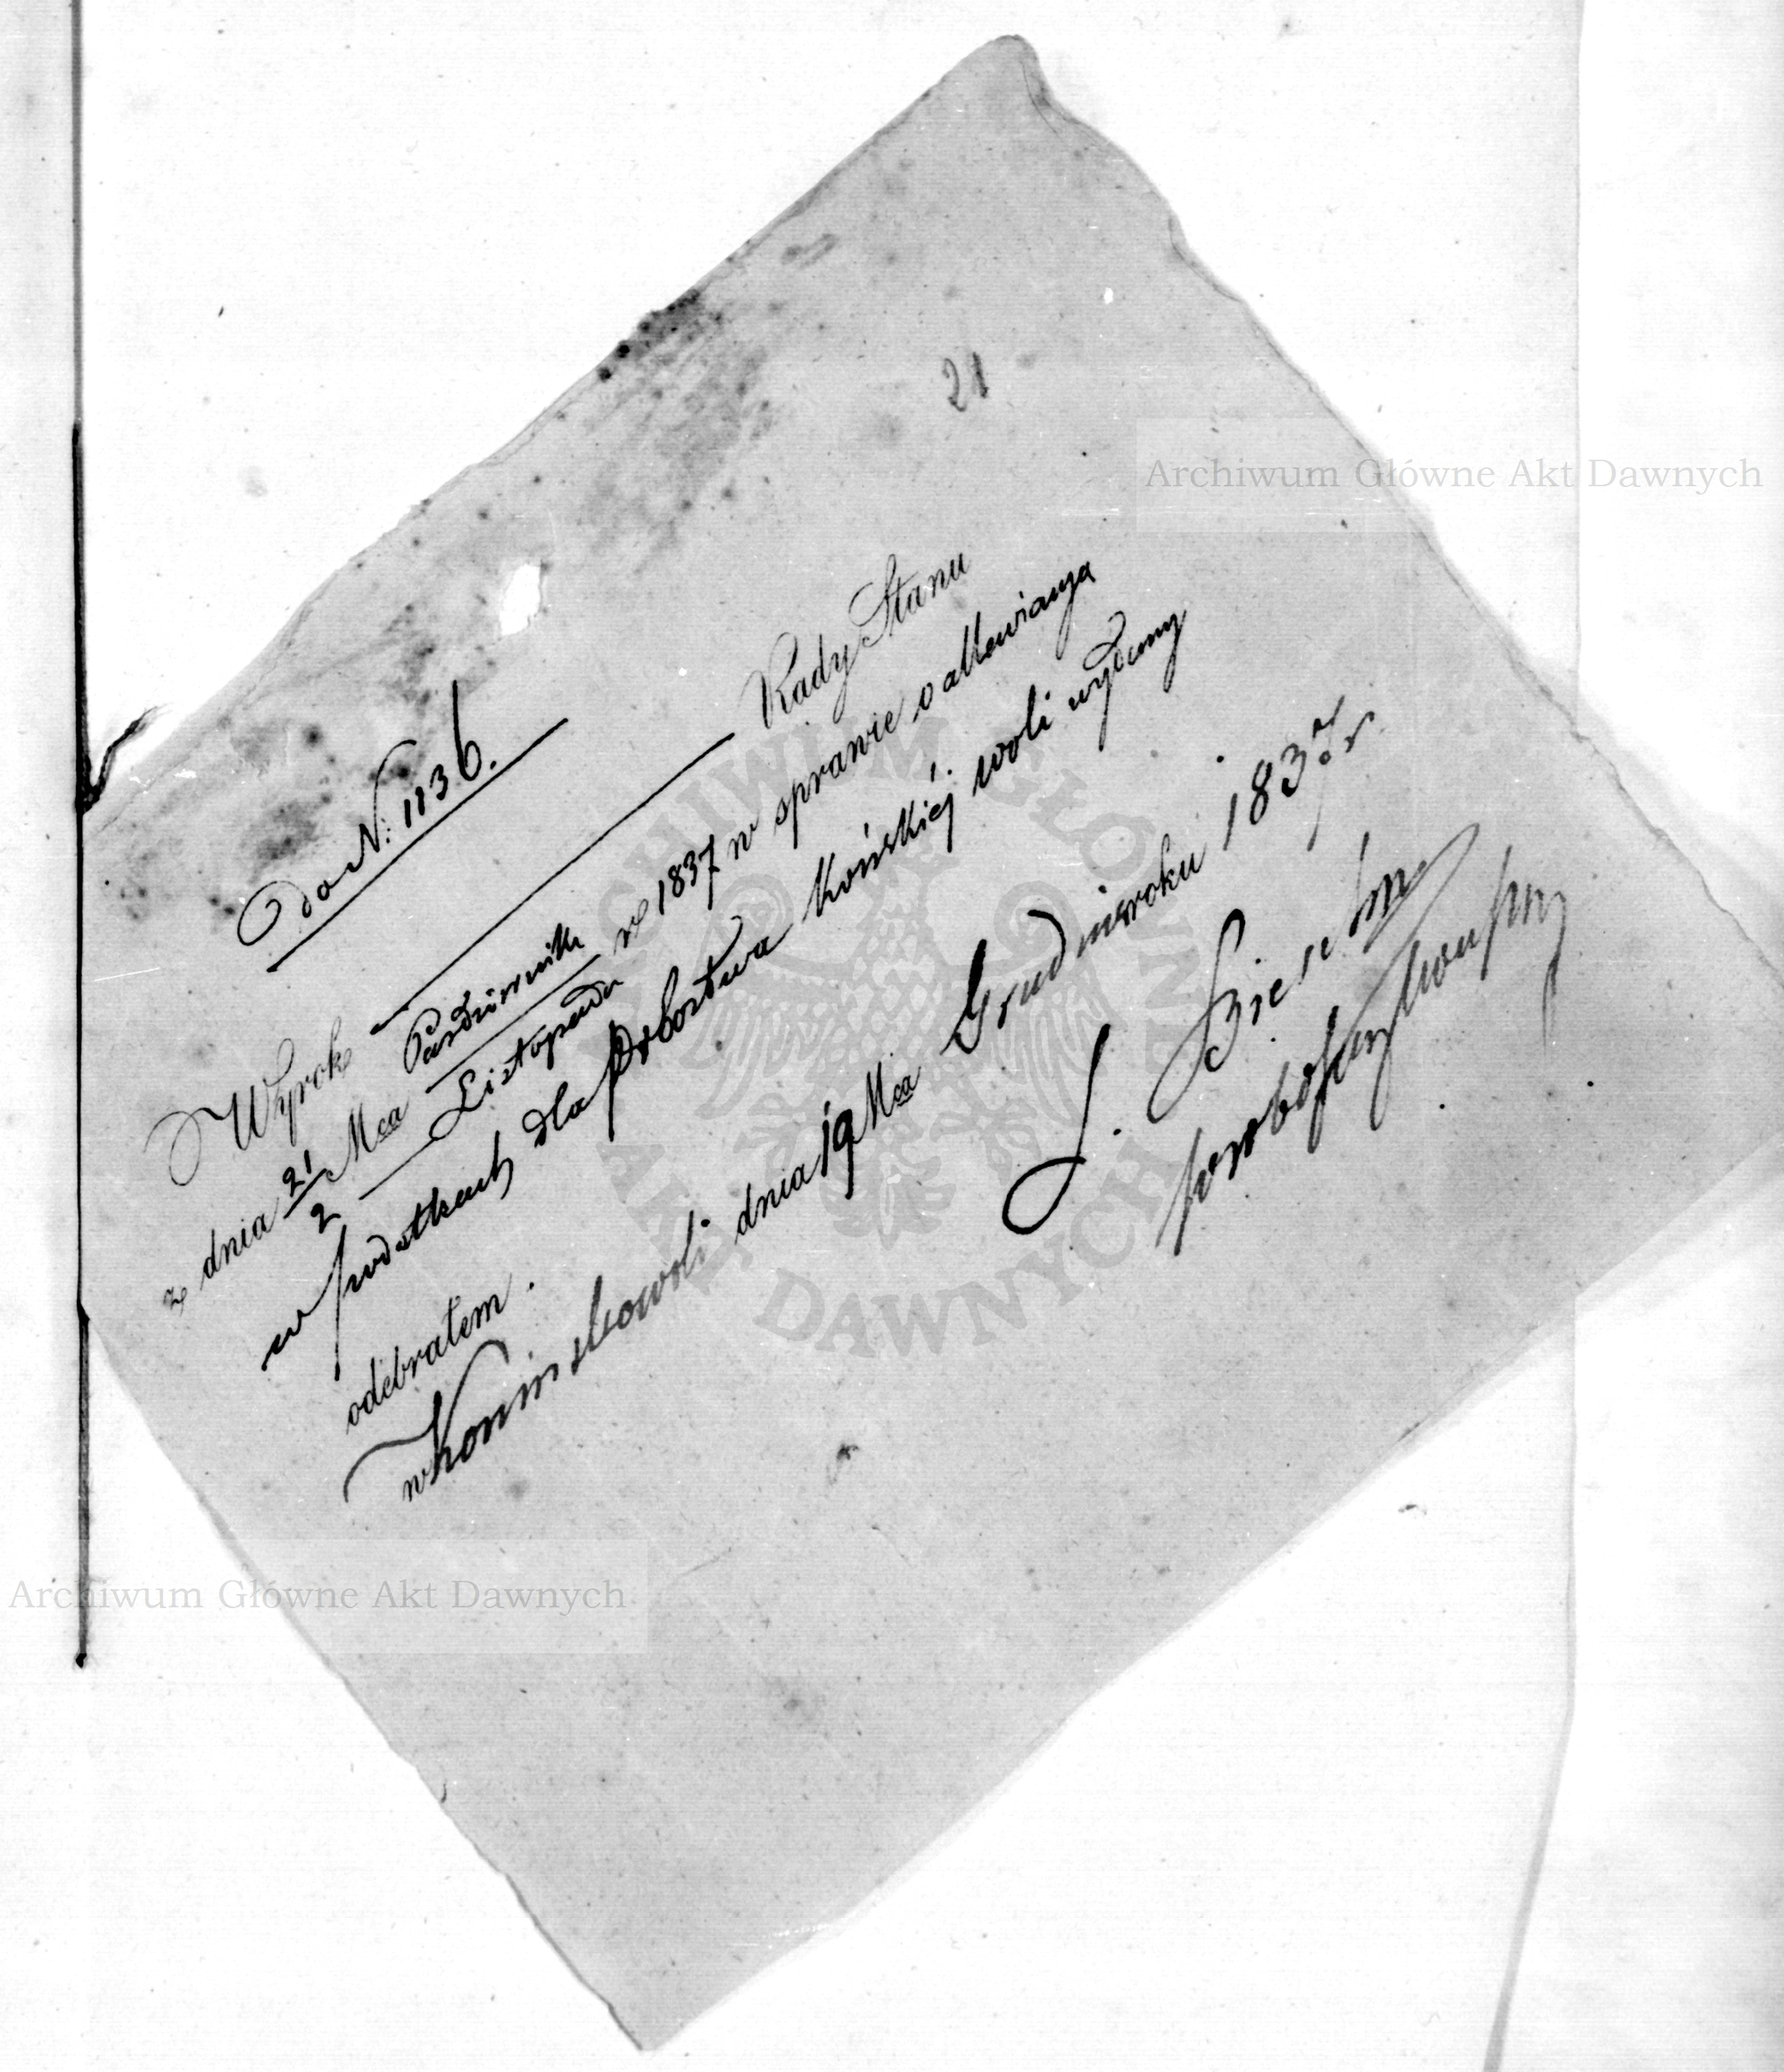 21
do N: 1136.
Wyrok Rady Stanu
z dnia 21/2 Mca Pazdziernika/Listopada r 1837 w sprawie o allewiancya
w podatkach dla Probostwa Końskiéj woli wydany
odebrałem.
w Koninskowoli dnia 19 Mca Grudnia roku 1837 r
J.
Archiwum Główne Akt Dawnych
Archiwum Główne Akt Dawnych
ARCHIWUM GŁÓWNE AKT DAWNYCH